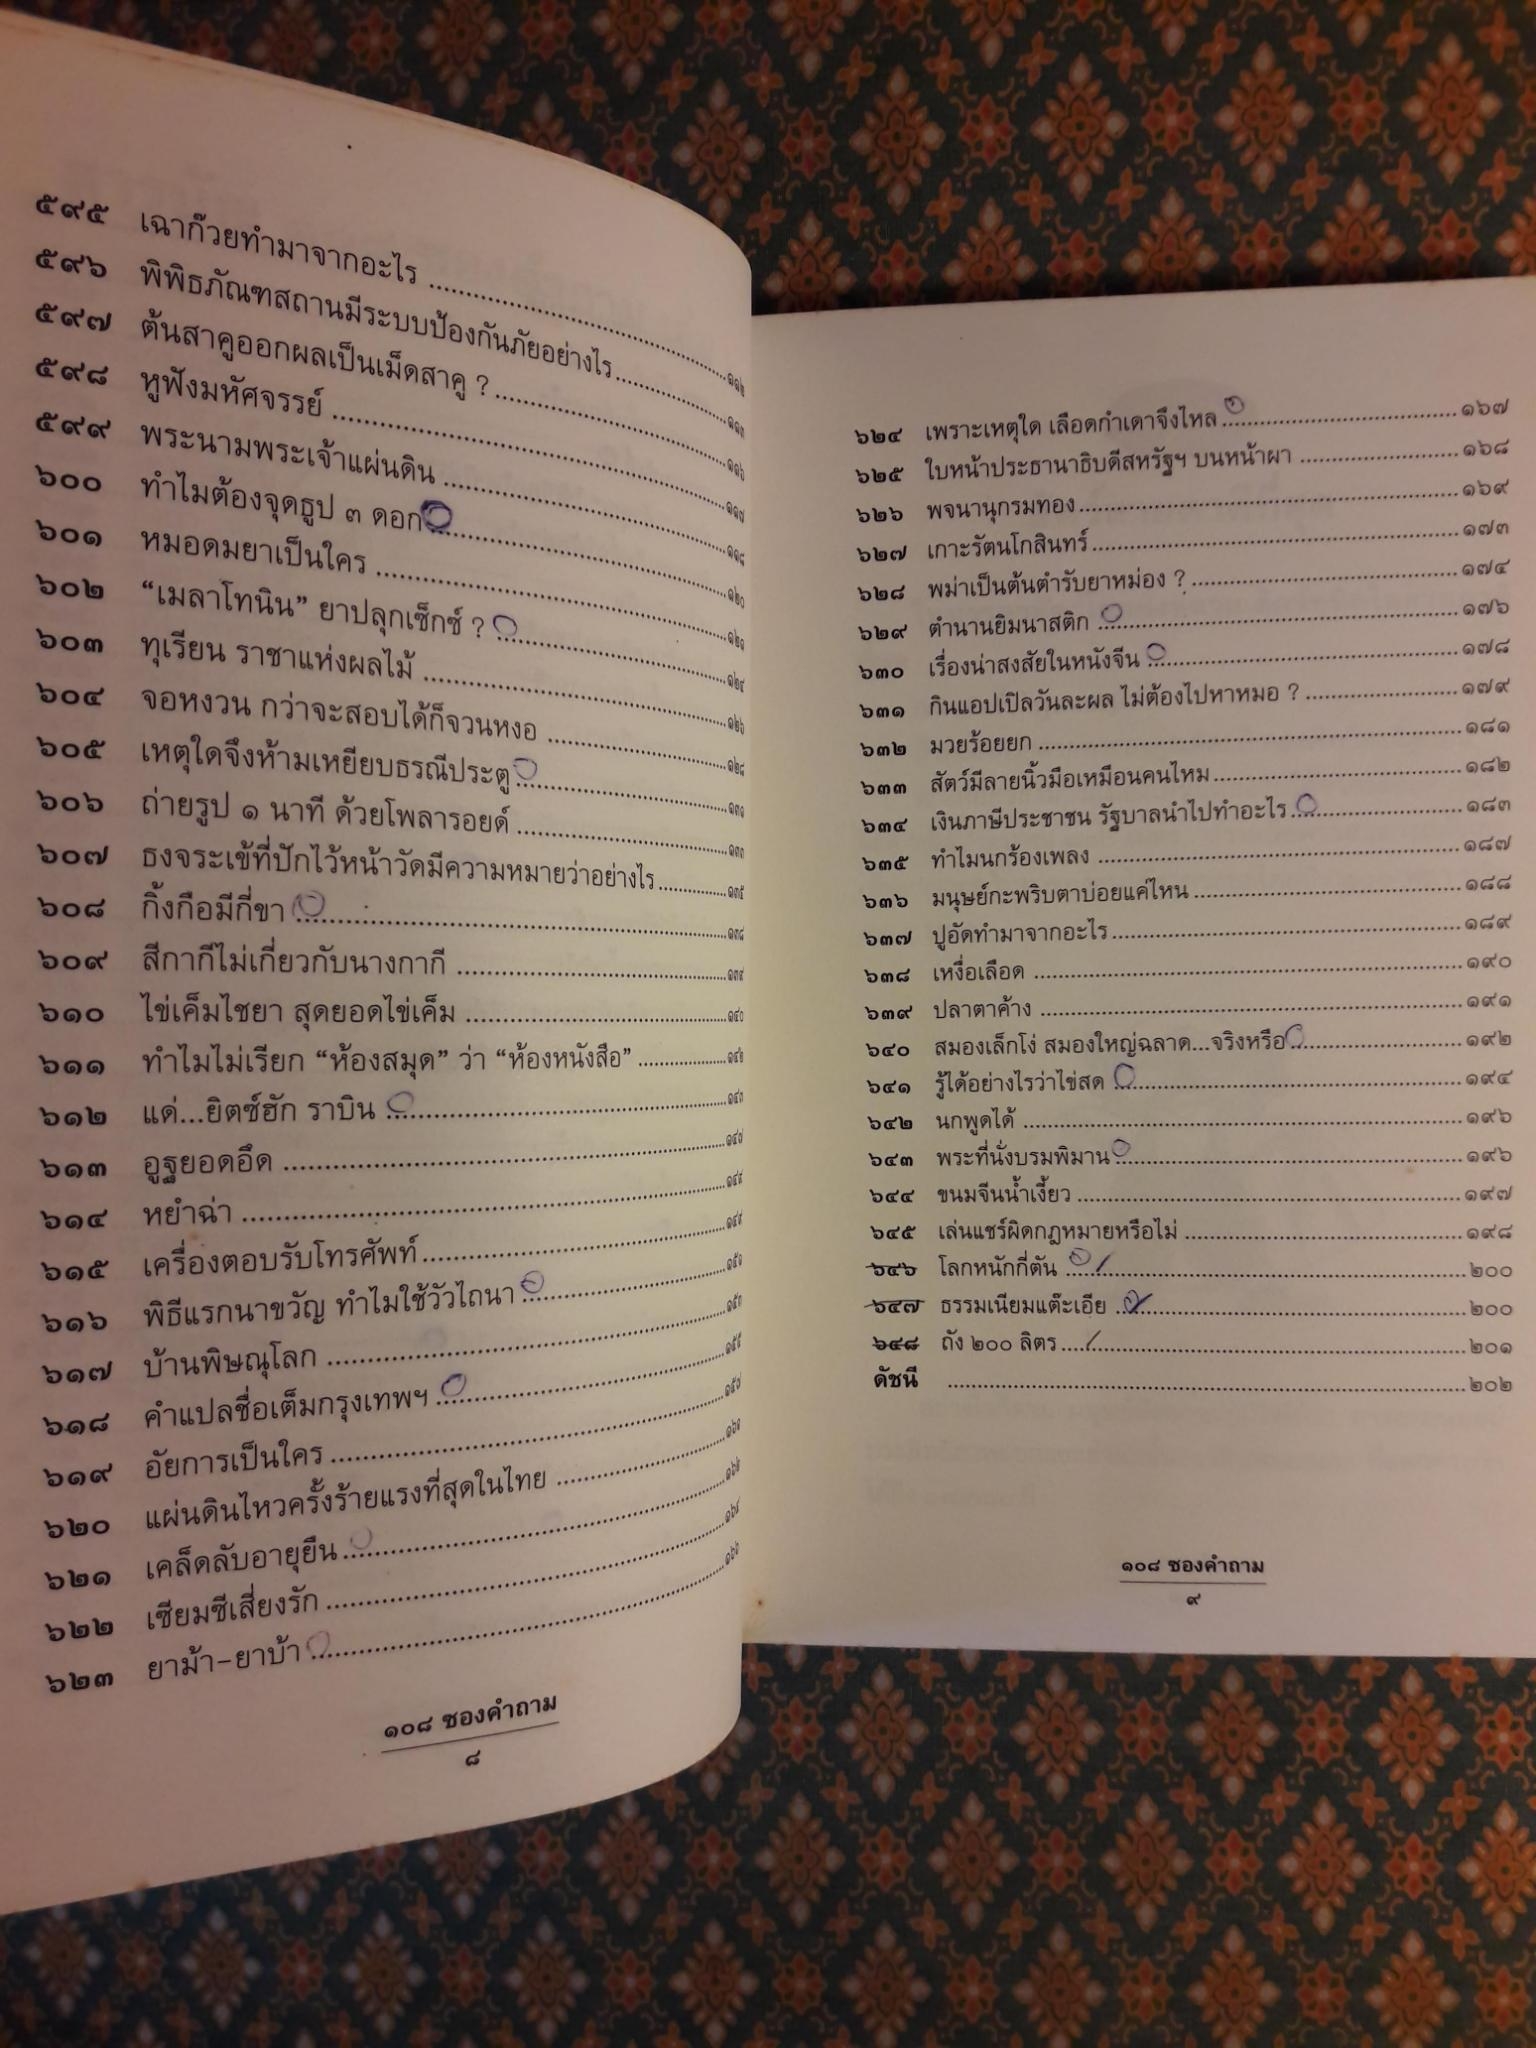 ๕๙๕ เฉาก๊วยทำมาจากอะไร ๑๑๒
๕๙๖ พิพิธภัณฑสถานมีระบบป้องกันภัยอย่างไร ๑๑๓
๕๙๗ ต้นสาคูออกผลเป็นเม็ดสาคู ? ๑๑๖
๕๙๘ หูฟังมหัศจรรย์ ๑๑๗
๕๙๙ พระนามพระเจ้าแผ่นดิน ๑๑๘
๖๐๐ ทำไมต้องจุดธูป ๓ ดอก ๑๒๐
๖๐๑ หมอดมยาเป็นใคร ๑๒๑
๖๐๒ “เมลาโทนิน” ยาปลุกเซ็กซ์ ? ๑๒๔
๖๐๓ ทุเรียน ราชาแห่งผลไม้ ๑๒๖
๖๐๔ จอหงวน กว่าจะสอบได้ก็จวนหงอ ๑๒๘
๖๐๕ เหตุใดจึงห้ามเหยียบธรณีประตู ๑๓๑
๖๐๖ ถ่ายรูป ๑ นาที ด้วยโพลารอยด์ ๑๓๓
๖๐๗ ธงจระเข้ที่ปักไว้หน้าวัดมีความหมายว่าอย่างไร ๑๓๕
๖๐๘ กิ้งกือมีกี่ขา ๑๓๘
๖๐๙ สีกากีไม่เกี่ยวกับนางกากี ๑๓๙
๖๑๐ ไข่เค็มไชยา สุดยอดไข่เค็ม ๑๔๐
๖๑๑ ทำไมไม่เรียก “ห้องสมุด” ว่า “ห้องหนังสือ” ๑๔๒
๖๑๒ แด่...ยิตซ์ฮัก ราบิน ๑๔๓
๖๑๓ อูฐยอดอึด ๑๔๗
๖๑๔ หยำฉ่า ๑๔๙
๖๑๕ เครื่องตอบรับโทรศัพท์ ๑๔๙
๖๑๖ พิธีแรกนาขวัญ ทำไมใช้วัวไถนา ๑๕๑
๖๑๗ บ้านพิษณุโลก ๑๕๓
๖๑๘ คำแปลชื่อเต็มกรุงเทพฯ ๑๕๕
๖๑๙ อัยการเป็นใคร ๑๕๗
๖๒๐ แผ่นดินไหวครั้งร้ายแรงที่สุดในไทย ๑๖๑
๖๒๑ เคล็ดลับอายุยืน ๑๖๒
๖๒๒ เซียมซีเสี่ยงรัก ๑๖๔
๖๒๓ ยาม้า-ยาบ้า ๑๖๖
๑๐๘ ซองคำถาม
๘
๖๒๔ เพราะเหตุใด เลือดกำเดาจึงไหล ๑๖๗
๖๒๕ ใบหน้าประธานาธิบดีสหรัฐฯ บนหน้าผา ๑๖๘
๖๒๖ พจนานุกรมทอง ๑๖๙
๖๒๗ เกาะรัตนโกสินทร์ ๑๗๓
๖๒๘ พม่าเป็นต้นตำรับยาหม่อง ? ๑๗๔
๖๒๙ ตำนานยิมนาสติก ๑๗๖
๖๓๐ เรื่องน่าสงสัยในหนังจีน ๑๗๘
๖๓๑ กินแอปเปิลวันละผล ไม่ต้องไปหาหมอ ? ๑๗๙
๖๓๒ มวยร้อยยก ๑๘๑
๖๓๓ สัตว์มีลายนิ้วมือเหมือนคนไหม ๑๘๒
๖๓๔ เงินภาษีประชาชน รัฐบาลนำไปทำอะไร ๑๘๓
๖๓๕ ทำไมนกร้องเพลง ๑๘๗
๖๓๖ มนุษย์กะพริบตาบ่อยแค่ไหน ๑๘๘
๖๓๗ ปูอัดทำมาจากอะไร ๑๘๙
๖๓๘ เหงื่อเลือด ๑๙๐
๖๓๙ ปลาตาค้าง ๑๙๑
๖๔๐ สมองเล็กโง่ สมองใหญ่ฉลาด...จริงหรือ ๑๙๒
๖๔๑ รู้ได้อย่างไรว่าไข่สด ๑๙๔
๖๔๒ นกพูดได้ ๑๙๖
๖๔๓ พระที่นั่งบรมพิมาน ๑๙๖
๖๔๔ ขนมจีนน้ำเงี้ยว ๑๙๗
๖๔๕ เล่นแชร์ผิดกฎหมายหรือไม่ ๑๙๘
๖๔๖ โลกหนักกี่ตัน ๒๐๐
๖๔๗ ธรรมเนียมแต๊ะเอีย ๒๐๐
๖๔๘ ถัง ๒๐๐ ลิตร ๒๐๑
ดัชนี ๒๐๒
๑๐๘ ซองคำถาม
๙